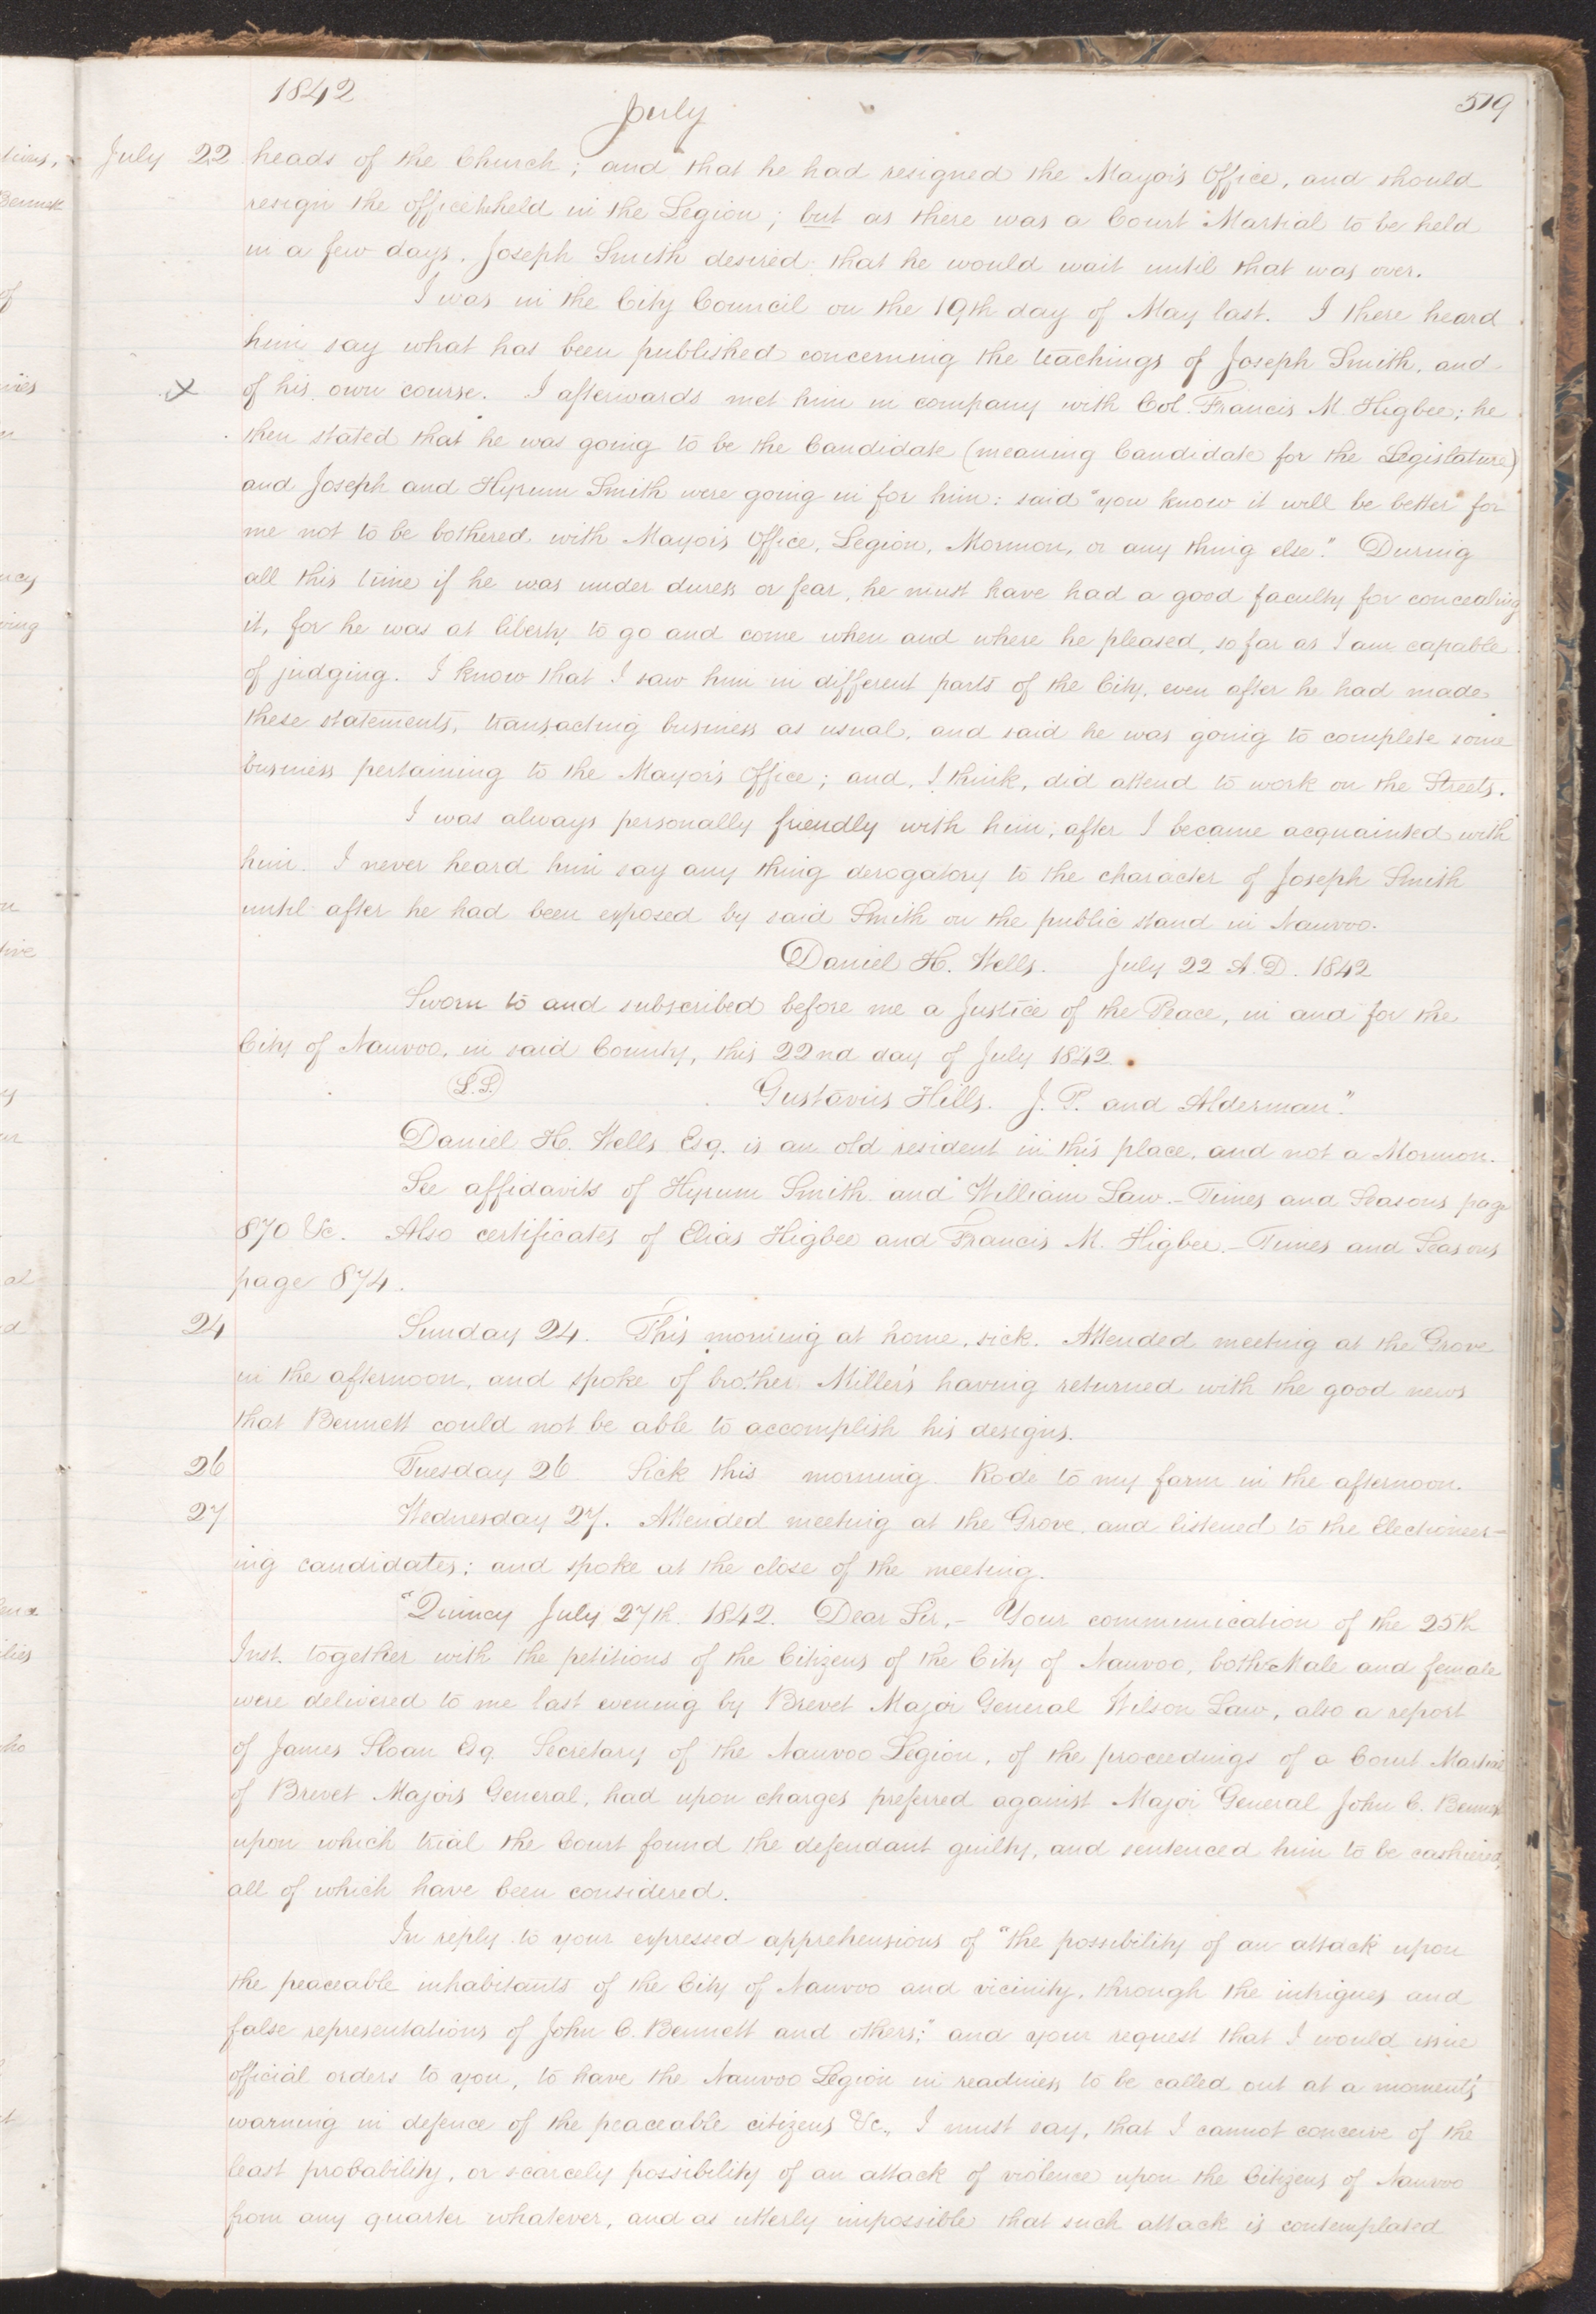 1842
July
519
July 22 heads of the Church; and that he had resigned the Mayor's Office, and should
resign the office he held in the Legion; but as there was a Court Martial to be held
in a few days, Joseph Smith desired that he would wait until that was over.
I was in the City Council on the 19th day of May last. I there heard
him say what has been published concerning the teachings of Joseph Smith, and
of his own course. I afterwards met him in company with Col. Francis M. Higbee; he
then stated that he was going to be the Candidate (meaning Candidate for the Legislature)
and Joseph and Hyrum Smith were going in for him: said "you know it will be better for
me not to be bothered with Mayor's Office, Legion, Mormon, or any thing else." During
all this time if he was under duress or fear, he must have had a good faculty for concealing
it, for he was at liberty to go and come when and where he pleased, so far as I am capable
of judging. I know that I saw him in different parts of the City, even after he had made
these statements, transacting business as usual, and said he was going to complete some
business pertaining to the Mayor's Office; and, I think, did attend to work on the Streets.
I was always personally friendly with him, after I became acquainted with
him. I never heard him say any thing derogatory to the character of Joseph Smith
until after he had been exposed by said Smith on the public stand in Nauvoo.
Daniel H. Wells. July 22 A.D. 1842
Sworn to and subscribed before me a Justice of the Peace, in and for the
City of Nauvoo, in said County, this 22nd day of July 1842.
L.S. Gustavus Hills. J. P. and Alderman."
Daniel H. Wells Esq. is an old resident in this place, and not a Mormon.
See affidavits of Hyrum Smith and William Law.- Times and Seasons page
870 &c. Also certificates of Elias Higbee and Francis M. Higbee.- Times and Seasons
page 874.
24 Sunday 24. This morning at home, sick. Attended meeting at the Grove
in the afternoon, and spoke of brother Miller's having returned with the good news
that Bennett could not be able to accomplish his designs.
26 Tuesday 26. Sick this morning. Rode to my farm in the afternoon.
27 Wednesday 27. Attended meeting at the Grove, and listened to the Electioneer-
ing candidates; and spoke at the close of the meeting.
"Quincy July 27th 1842. Dear Sir,- Your communication of the 25th
Inst. together with the petitions of the Citizens of the City of Nauvoo, both Male and female
were delivered to me last evening by Brevet Major General Wilson Law, also a report
of James Sloan Esq. Secretary of the Nauvoo Legion, of the proceedings of a Court Martial
of Brevet Majors General, had upon charges preferred against Major General John C. Bennett
upon which trial the Court found the defendant guilty, and sentenced him to be cashiered,
all of which have been considered.
In reply to your expressed apprehensions of "the possibility of an attack upon
the peaceable inhabitants of the City of Nauvoo and vicinity, through the intrigues and
false representations of John C. Bennett and others;" and your request that I would issue
official orders to you, to have the Nauvoo Legion in readiness to be called out at a moment's
warning in defence of the peaceable citizens &c., I must say, that I cannot conceive of the
least probability, or scarcely possibility of an attack of violence upon the Citizens of Nauvoo
from any quarter whatever, and as utterly impossible that such attack is contemplated